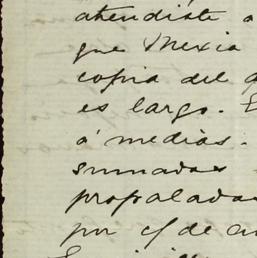 atendiste a
que Mexia
copia del
es largo.
á medias.
sumadas
propaladas
por c/ de